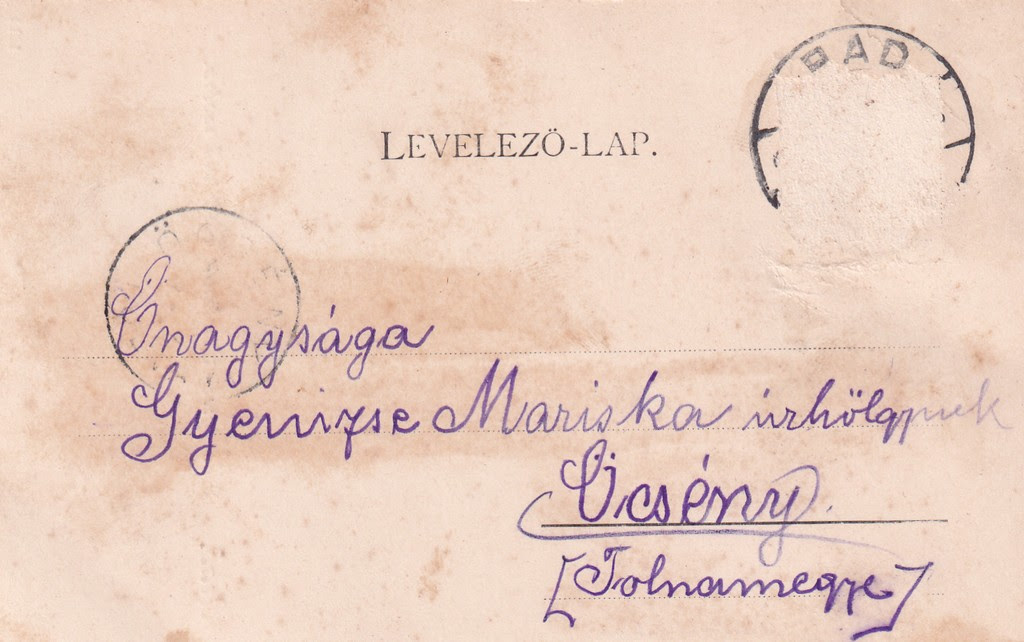 RAD
LEVELEZŐ-LAP.
Őnagysága
Gyenizse Mariska úrhölgynek
Őcsény
[Tolnamegye]